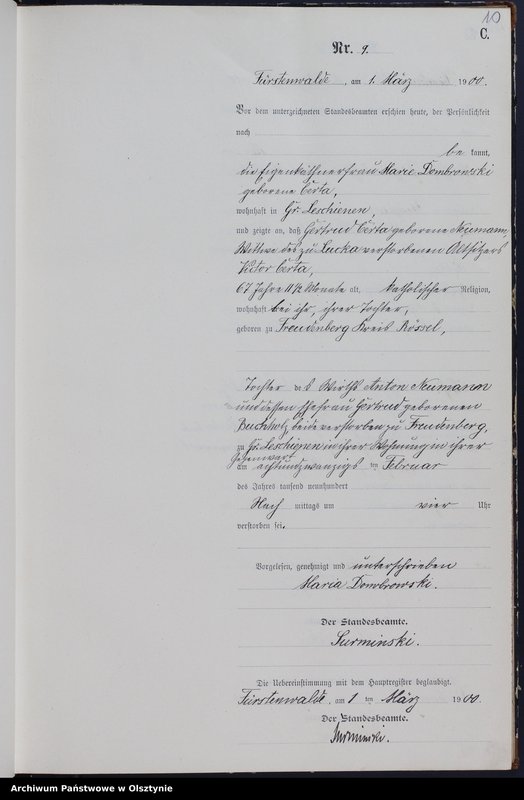 10
C.
Nr. 9.
Fürstenwalde, am 1. März 1900.
Vor dem unterzeichneten Standesbeamten erschien heute, der Persönlichkeit
nach
be kannt,
die Eigenkäthnerfrau Marie Dombrowski
geborene Certa,
wohnhaft in Gr. Leschienen,
und zeigte an, daß Gertrud Certa geborene Neumann,
Wittwe des zu Lucka verstorbenen Altsitzers
Victor Certa,
67 Jahre 11½ Monate alt, katholischer Religion,
wohnhaft bei ihr, ihrer Tochter,
geboren zu Freudenberg Kreis Rössel,
Tochter des Wirths Anton Neumann
und dessen Ehefrau Gertrud geborenen
Buchholz, beide verstorben zu Freudenberg,
zu Gr. Leschienen in ihrer Wohnung in ihrer
Gegenwart
am achtundzwanzigsten Februar
des Jahres tausend neunhundert
Nach mittags um vier Uhr
verstorben sei.
Vorgelesen, genehmigt und unterschrieben
Maria Dombrowski.
Der Standesbeamte.
Surminski.
Die Uebereinstimmung mit dem Hauptregister beglaubigt.
Fürstenwalde, am 1ten März 1900.
Der Standesbeamte.
Surminski.
Archiwum Państwowe w Olsztynie